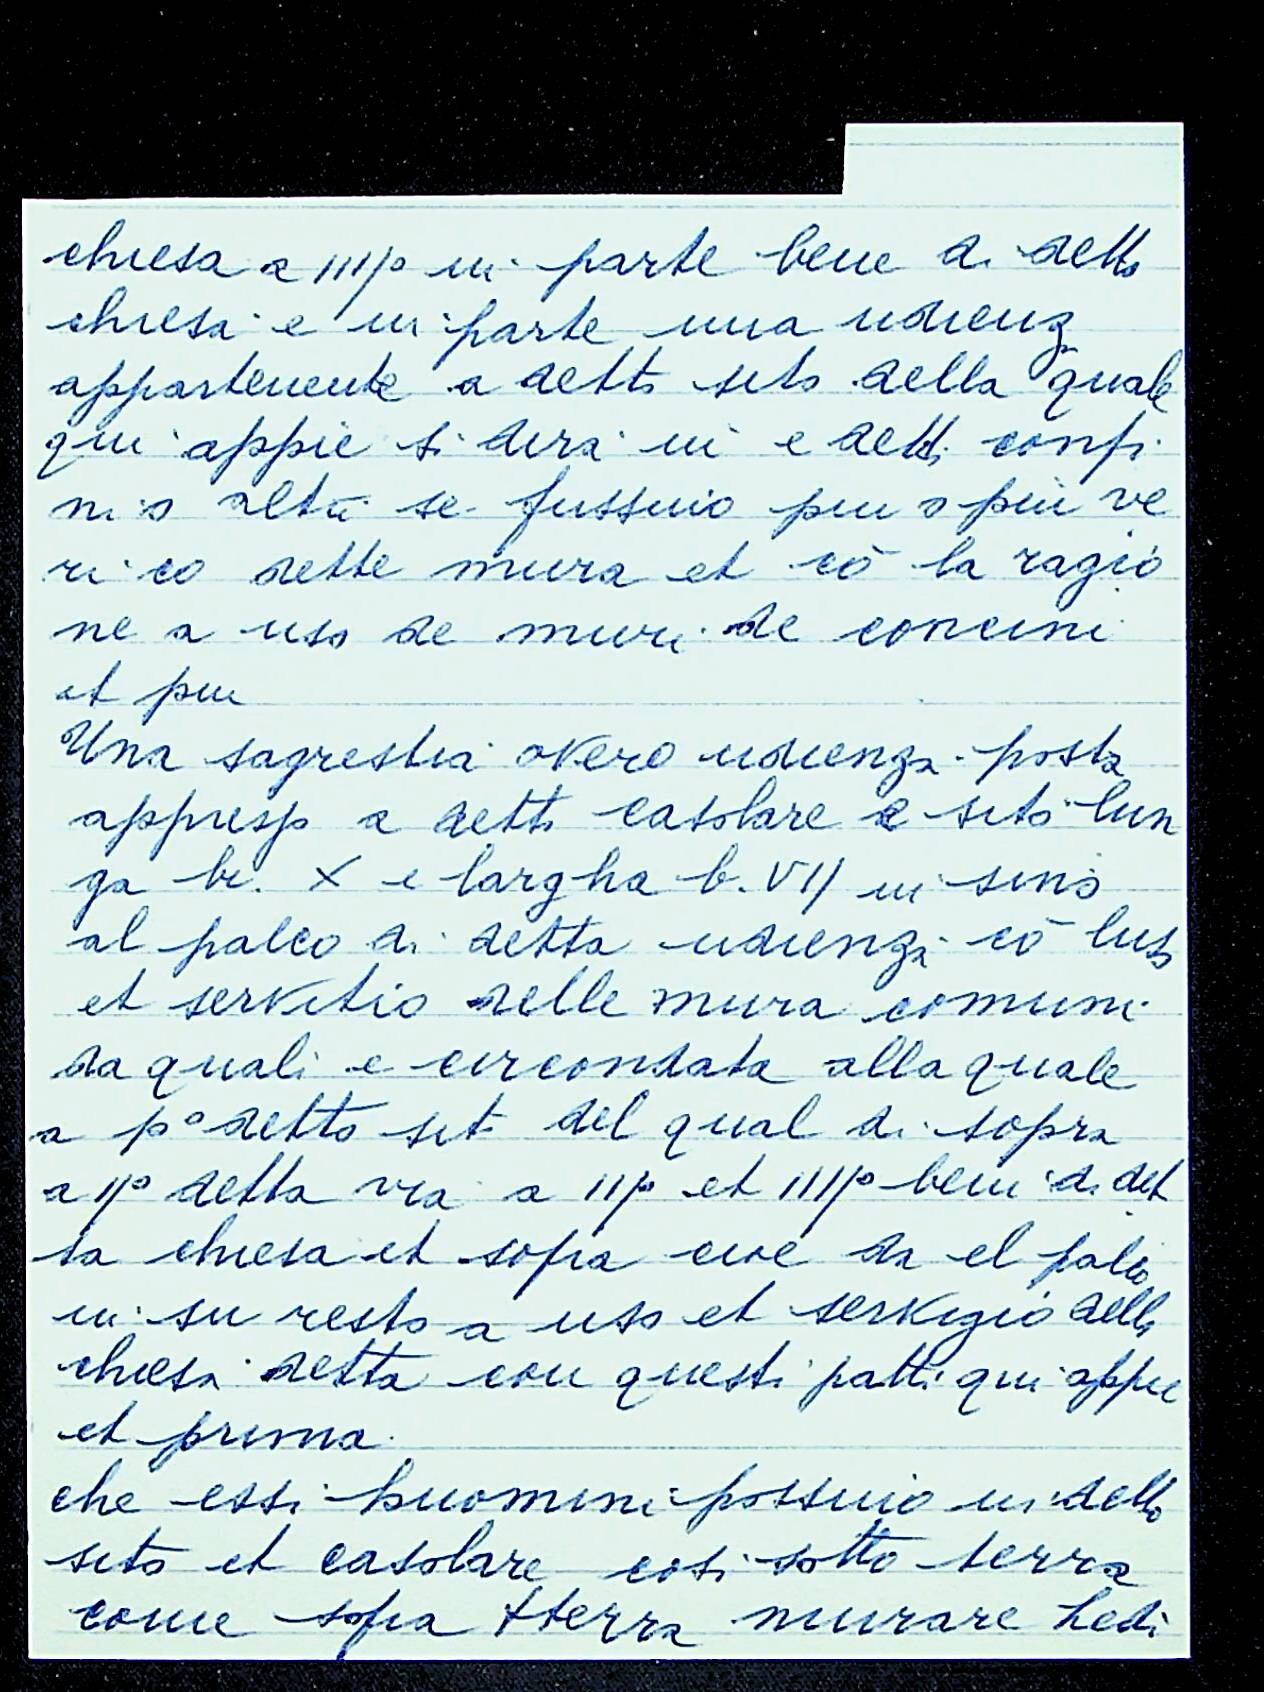 chiesa a IIIIº in parte bene di detto
chiesa e in parte una udienza
appartenente a detto sito della quale
qui appie si dira in e detti confi
ni o altri se fussino piu o piu ve
ri co dette mura et cō la ragio
ne a uso de muri de concini
et piu
Una sagrestia overo udienza posta
appresso a detto casolare e sito lun
ga br. X e largha b. VII in sino
al palco di detta udienza cō luso
et servitio delle mura comuni
da quali e circondata alla quale
a pº detto sito del qual di sopra
a IIº detta via a IIIº et IIIIº beni di det
ta chiesa et sopra cioe da el palco
in su resto a uso et servigio della
chiesa detta con questi patti qui appie
et prima
che essi huomini possino in detto
sito et casolare cosi sotto terra
come sopra tterra murare hedi